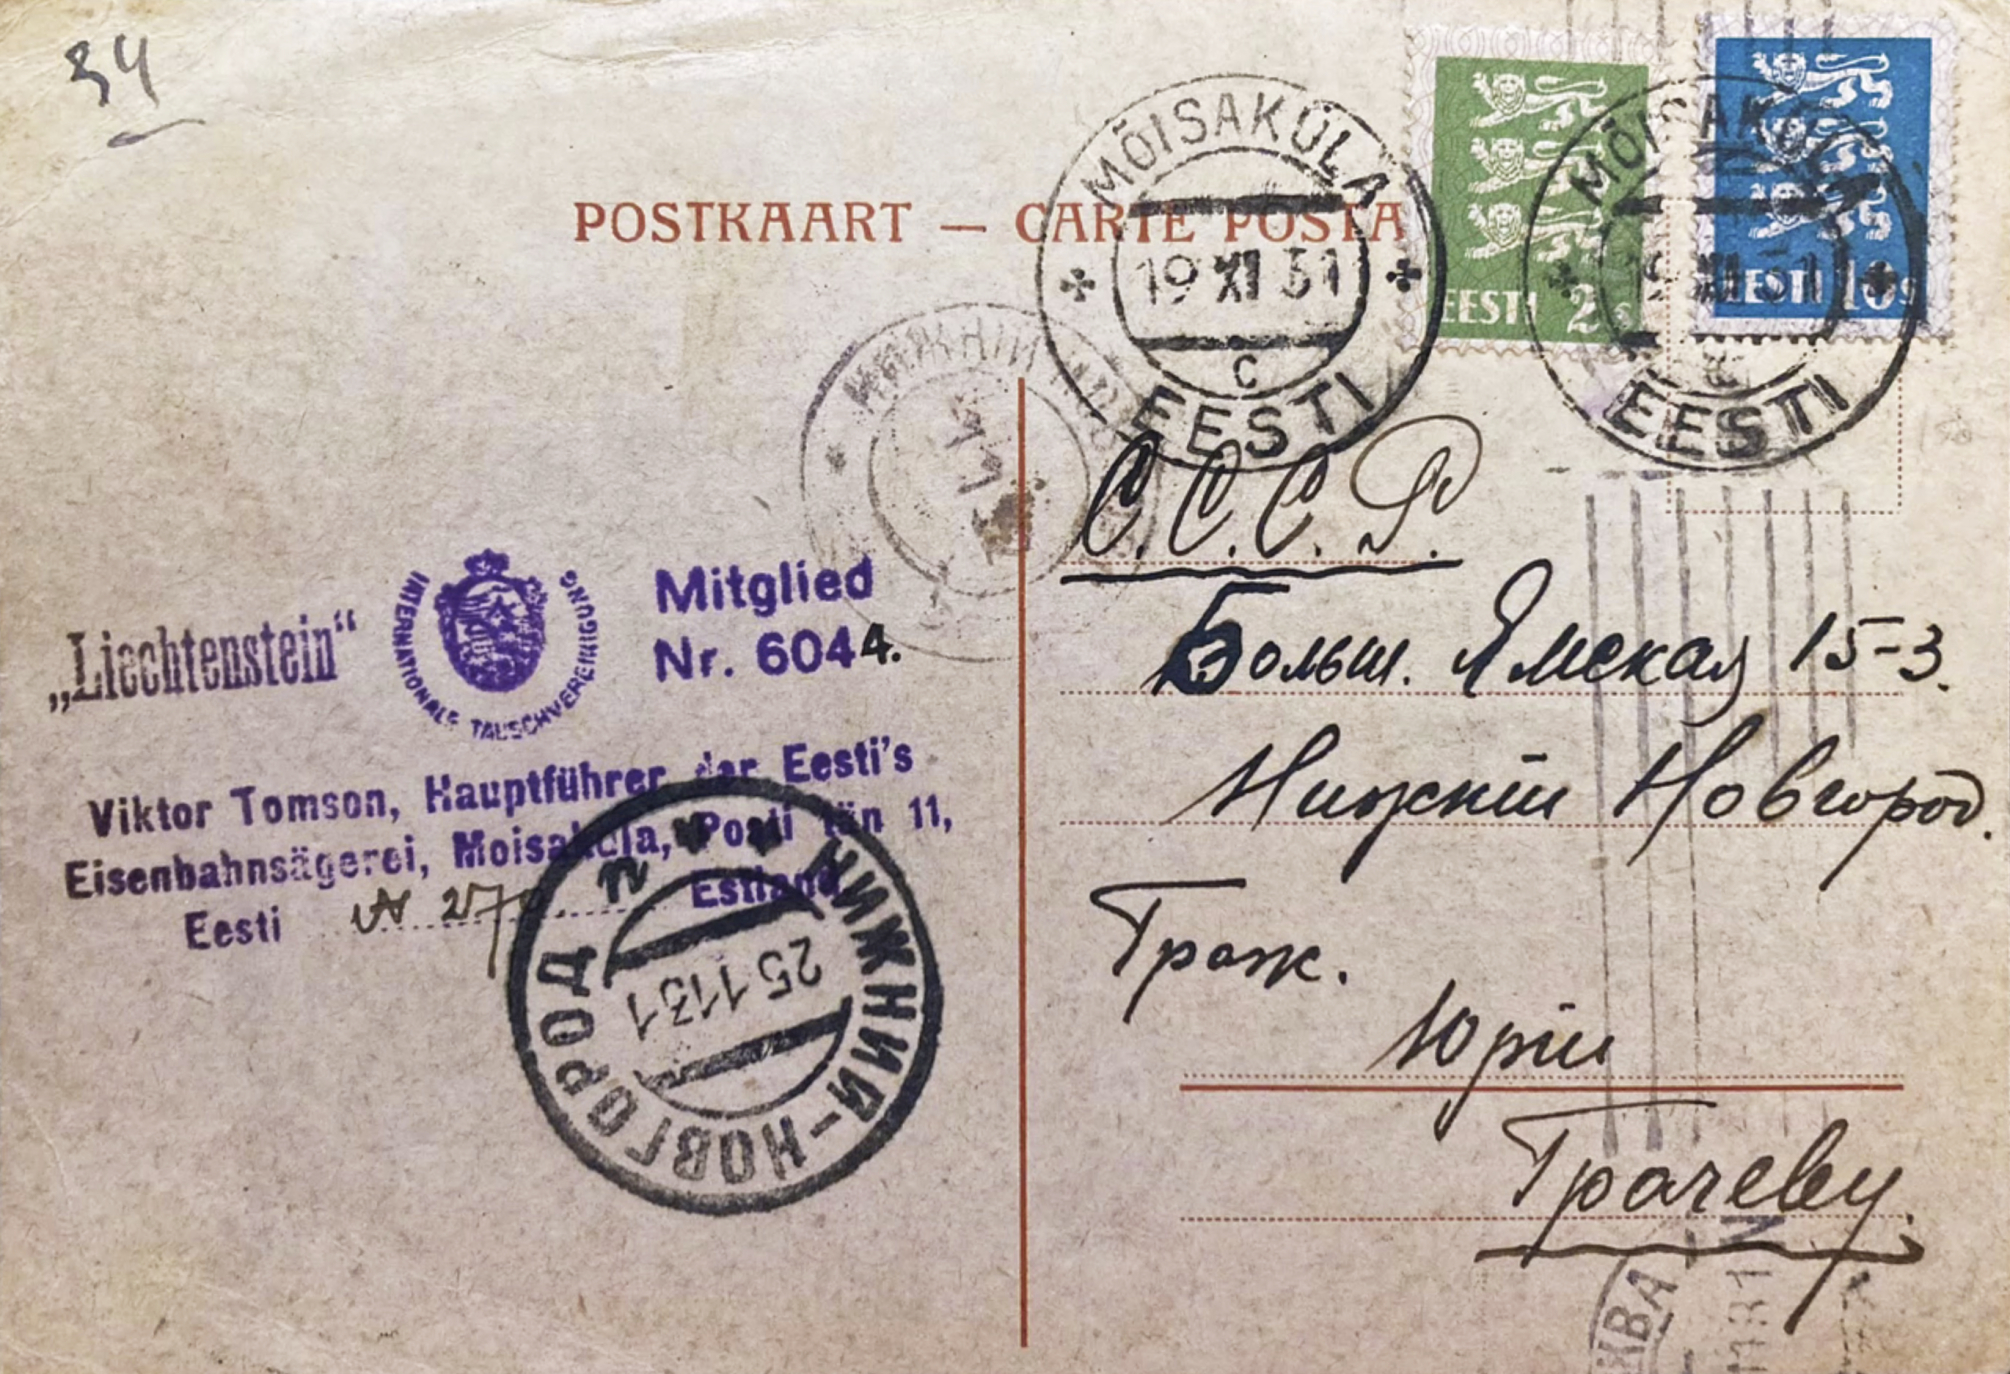 34
POSTKAART — CARTE POSTA
MÕISAKÜLA
19 XI 31
C
EESTI
EESTI 2s
MÕISAKÜLA
19 XI 31
EESTI
EESTI 10s
С.С.С.Р.
Больш. Ямская 15-3.
Нижнiй Новгород.
Граж.
Юрiй
Грачеву.
„Liechtenstein“
INTERNATIONALE TAUSCHVEREINIGUNG
Mitglied
Nr. 6044.
Viktor Tomson, Hauptführer der Eesti's
Eisenbahnsägerei, Moisakula, Posti tän 11,
Eesti Estland
НИЖНИЙ-НОВГОРОД
25 11 31